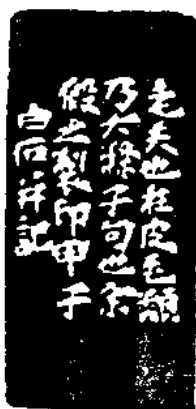 老夫也在皮毛類
乃大滌子句也余
假之制印甲子
白石并記